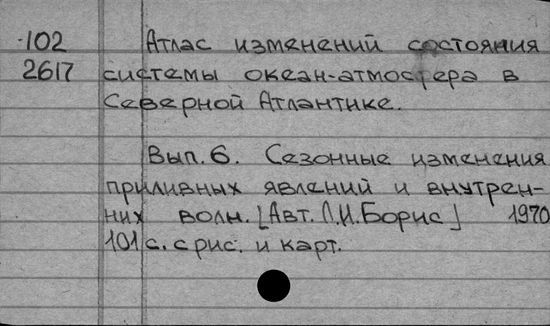 102 Атлас изменений состояния
2617 системы океан-атмосфера в
Северной Атлантике.
Вып. 6. Сезонные изменения
приливных явлений и внутрен-
них волн. [Авт. Л.И.Борис] 1970
101 с. с рис. и карт.